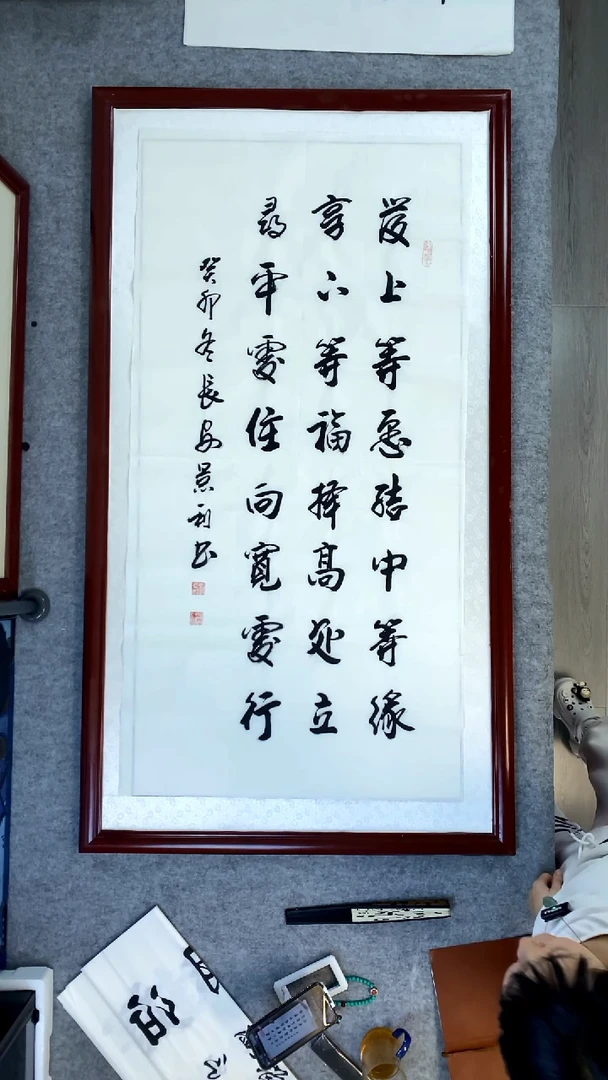 發上等愿结中等缘
享下等福择高处立
尋平處住向寬處行
癸卯冬長安景利书